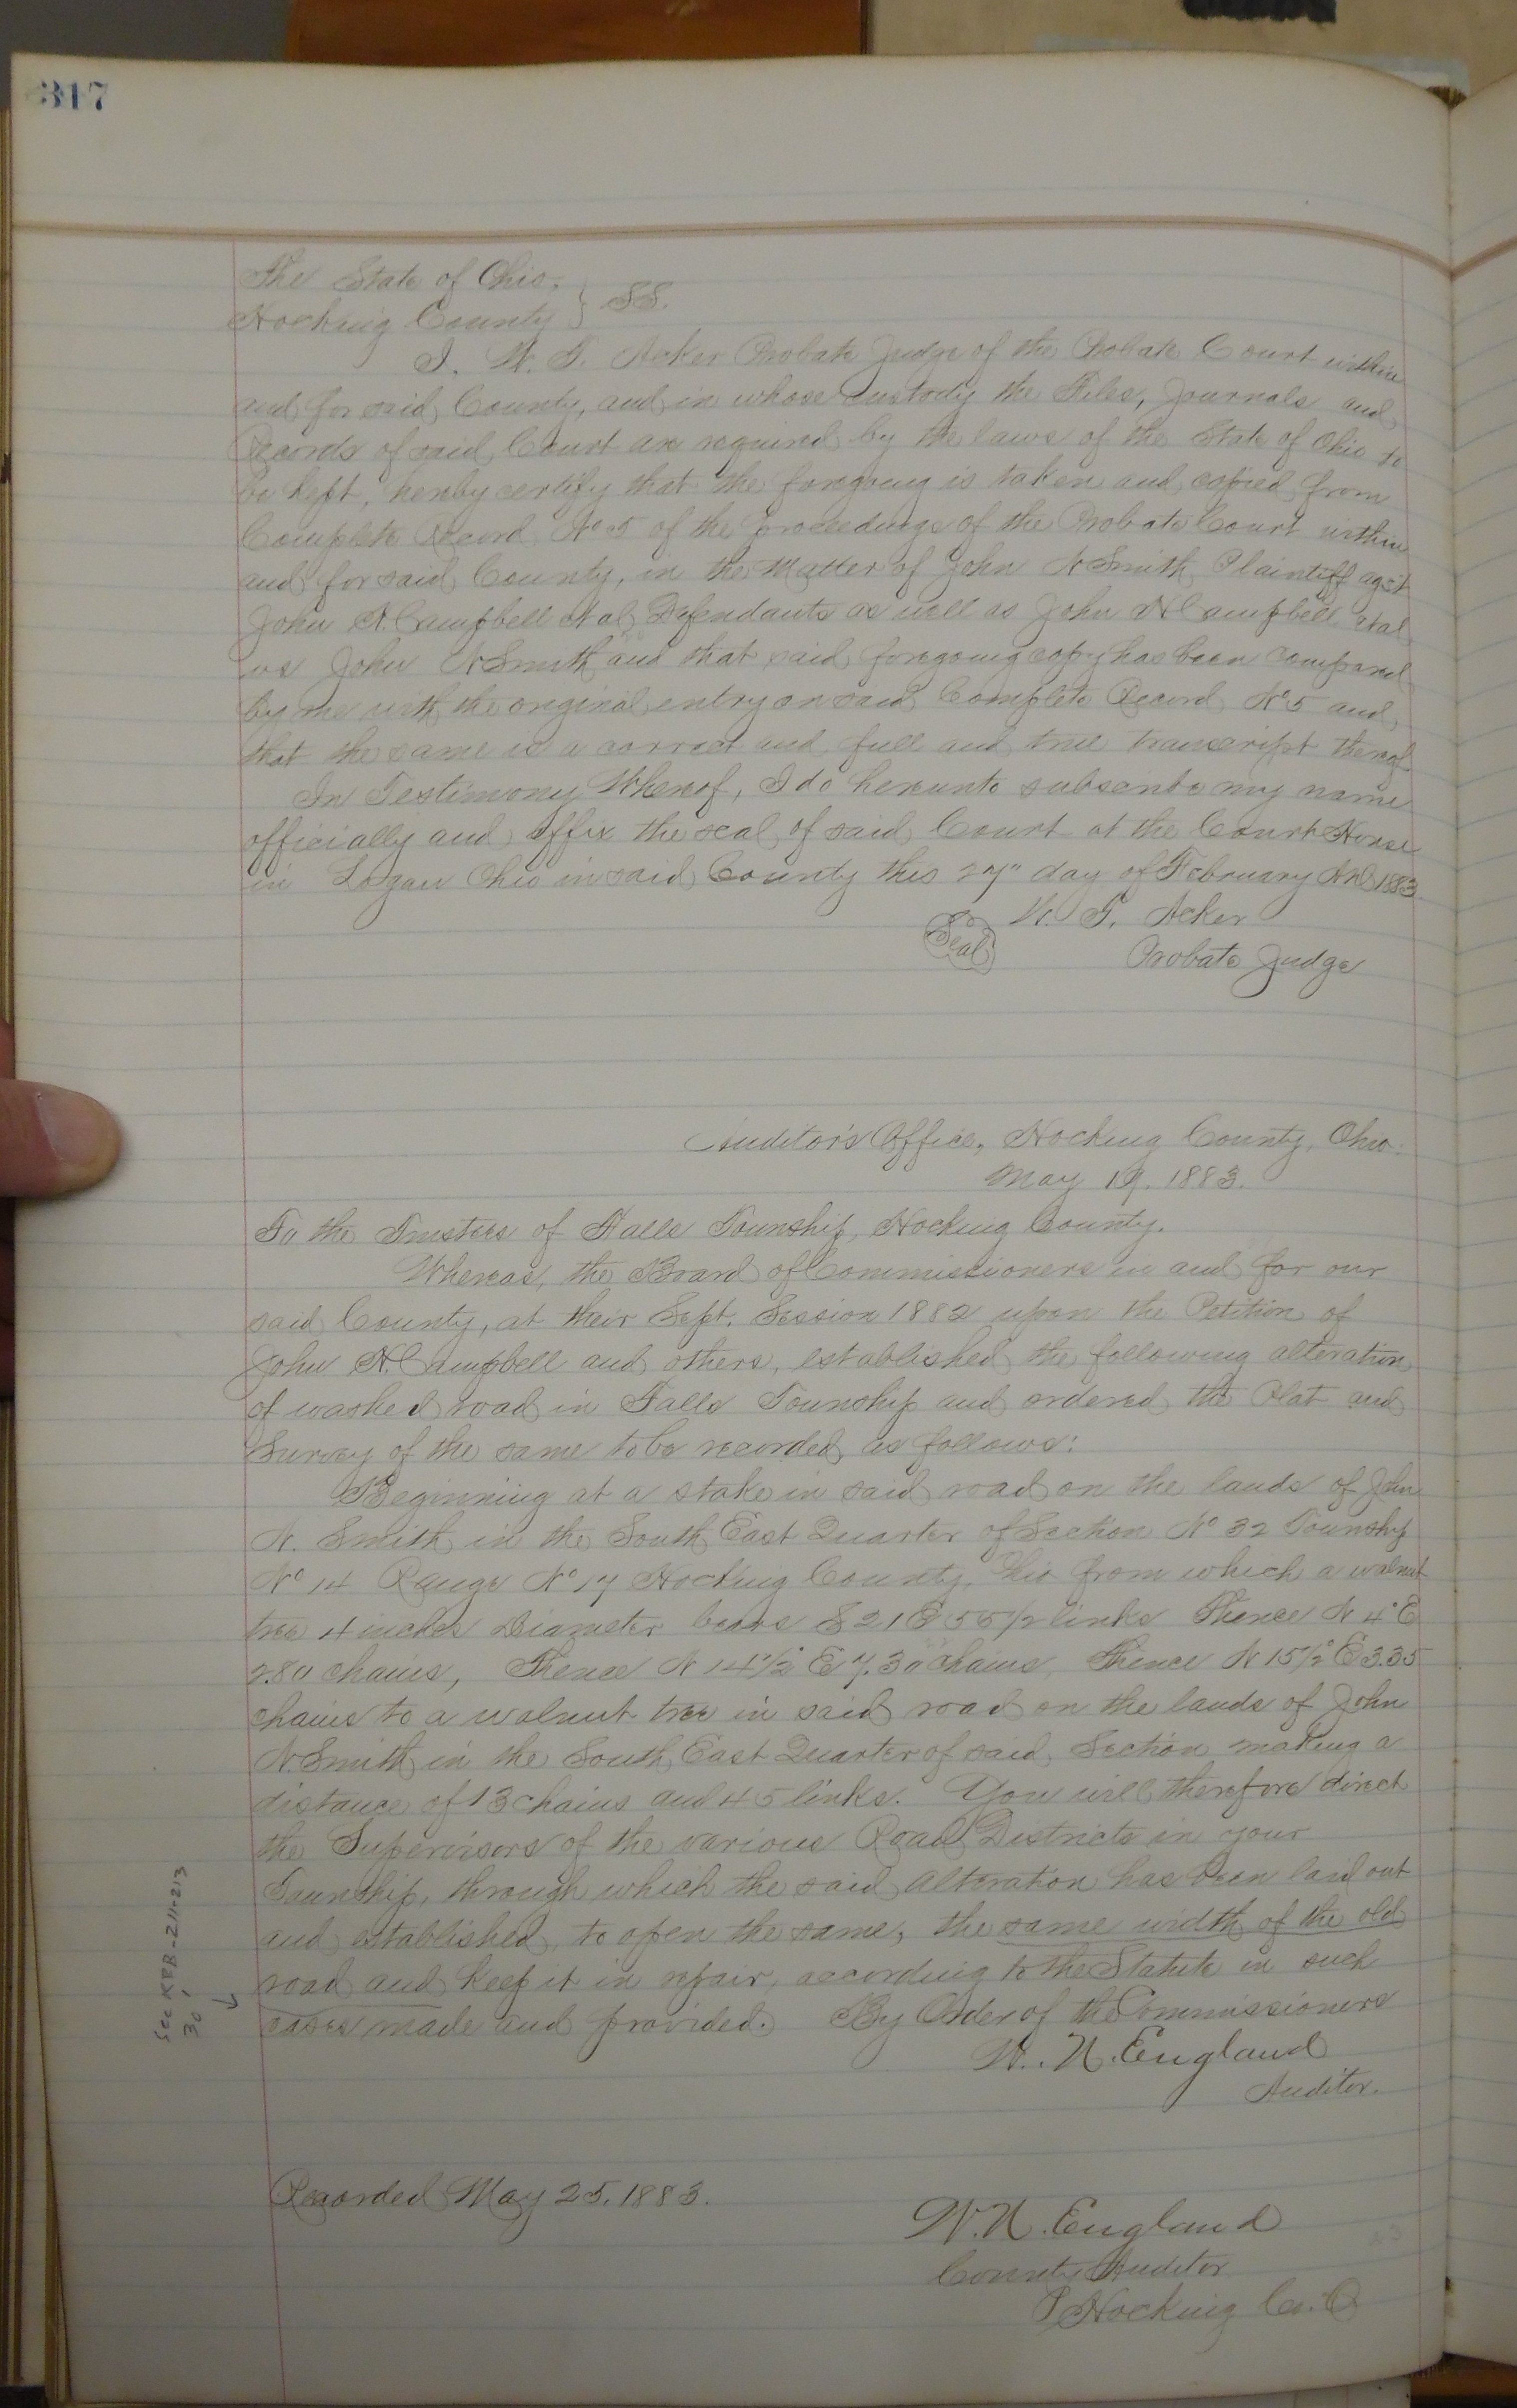 317
The State of Ohio,
Hocking County } SS.
I, W. T. Acker Probate Judge of the Probate Court within
and for said County, and in whose custody the Files, Journals and
Records of said Court are required by the laws of the State of Ohio to
be kept, hereby certify that the foregoing is taken and copied from
Complete Record No 5 of the proceedings of the Probate Court within
and for said County, in the Matter of John N Smith Plaintiff agst
John N. Campbell et al Defendants as well as John N Campbell etal
vs John N Smith and that said foregoing copy has been compared
by me with the original entry on said Complete Record No 5 and
that the same is a correct and full and true transcript thereof
In Testimony Whereof, I do hereunto subscribe my name
officially and affix the seal of said Court at the Court House
in Logan Ohio in said County this 27" day of February AD 1883
Seal W. T. Acker
Probate Judge
Auditor's Office, Hocking County, Ohio.
May 19. 1883.
To the Trustees of Falls Township, Hocking County.
Whereas, the Board of Commissioners in and for our
said County, at their Sept. Session 1882 upon the Petition of
John N. Campbell and others, established the following alteration
of washed road in Falls Township and ordered the Plat and
Survey of the same to be recorded as follows:
Beginning at a stake in said road on the lands of John
N. Smith in the South East Quarter of Section No 32 Township
No 14 Range No 17 Hocking County, Ohio from which a walnut
tree 4 inches Diameter bears S 21 E 55 1/2 links Thence N 4° E
2.80 chains, Thence N 14 1/2° E 7.30 chains Thence N 15 1/2° E 3.35
chains to a walnut tree in said road on the lands of John
N Smith in the South East Quarter of said Section making a
distance of 13 chains and 45 links. You will therefore direct
the Supervisors of the various Road Districts in your
Township, through which the said alteration has been laid out
and established, to open the same, the same width of the old
road and keep it in repair, according to the Statute in such
cases made and provided. By Order of the Commissioners
W. N. England
Auditor.
Recorded May 25, 1883.
W. N. England
County Auditor
Hocking Co. O
See RRB-211-213
30